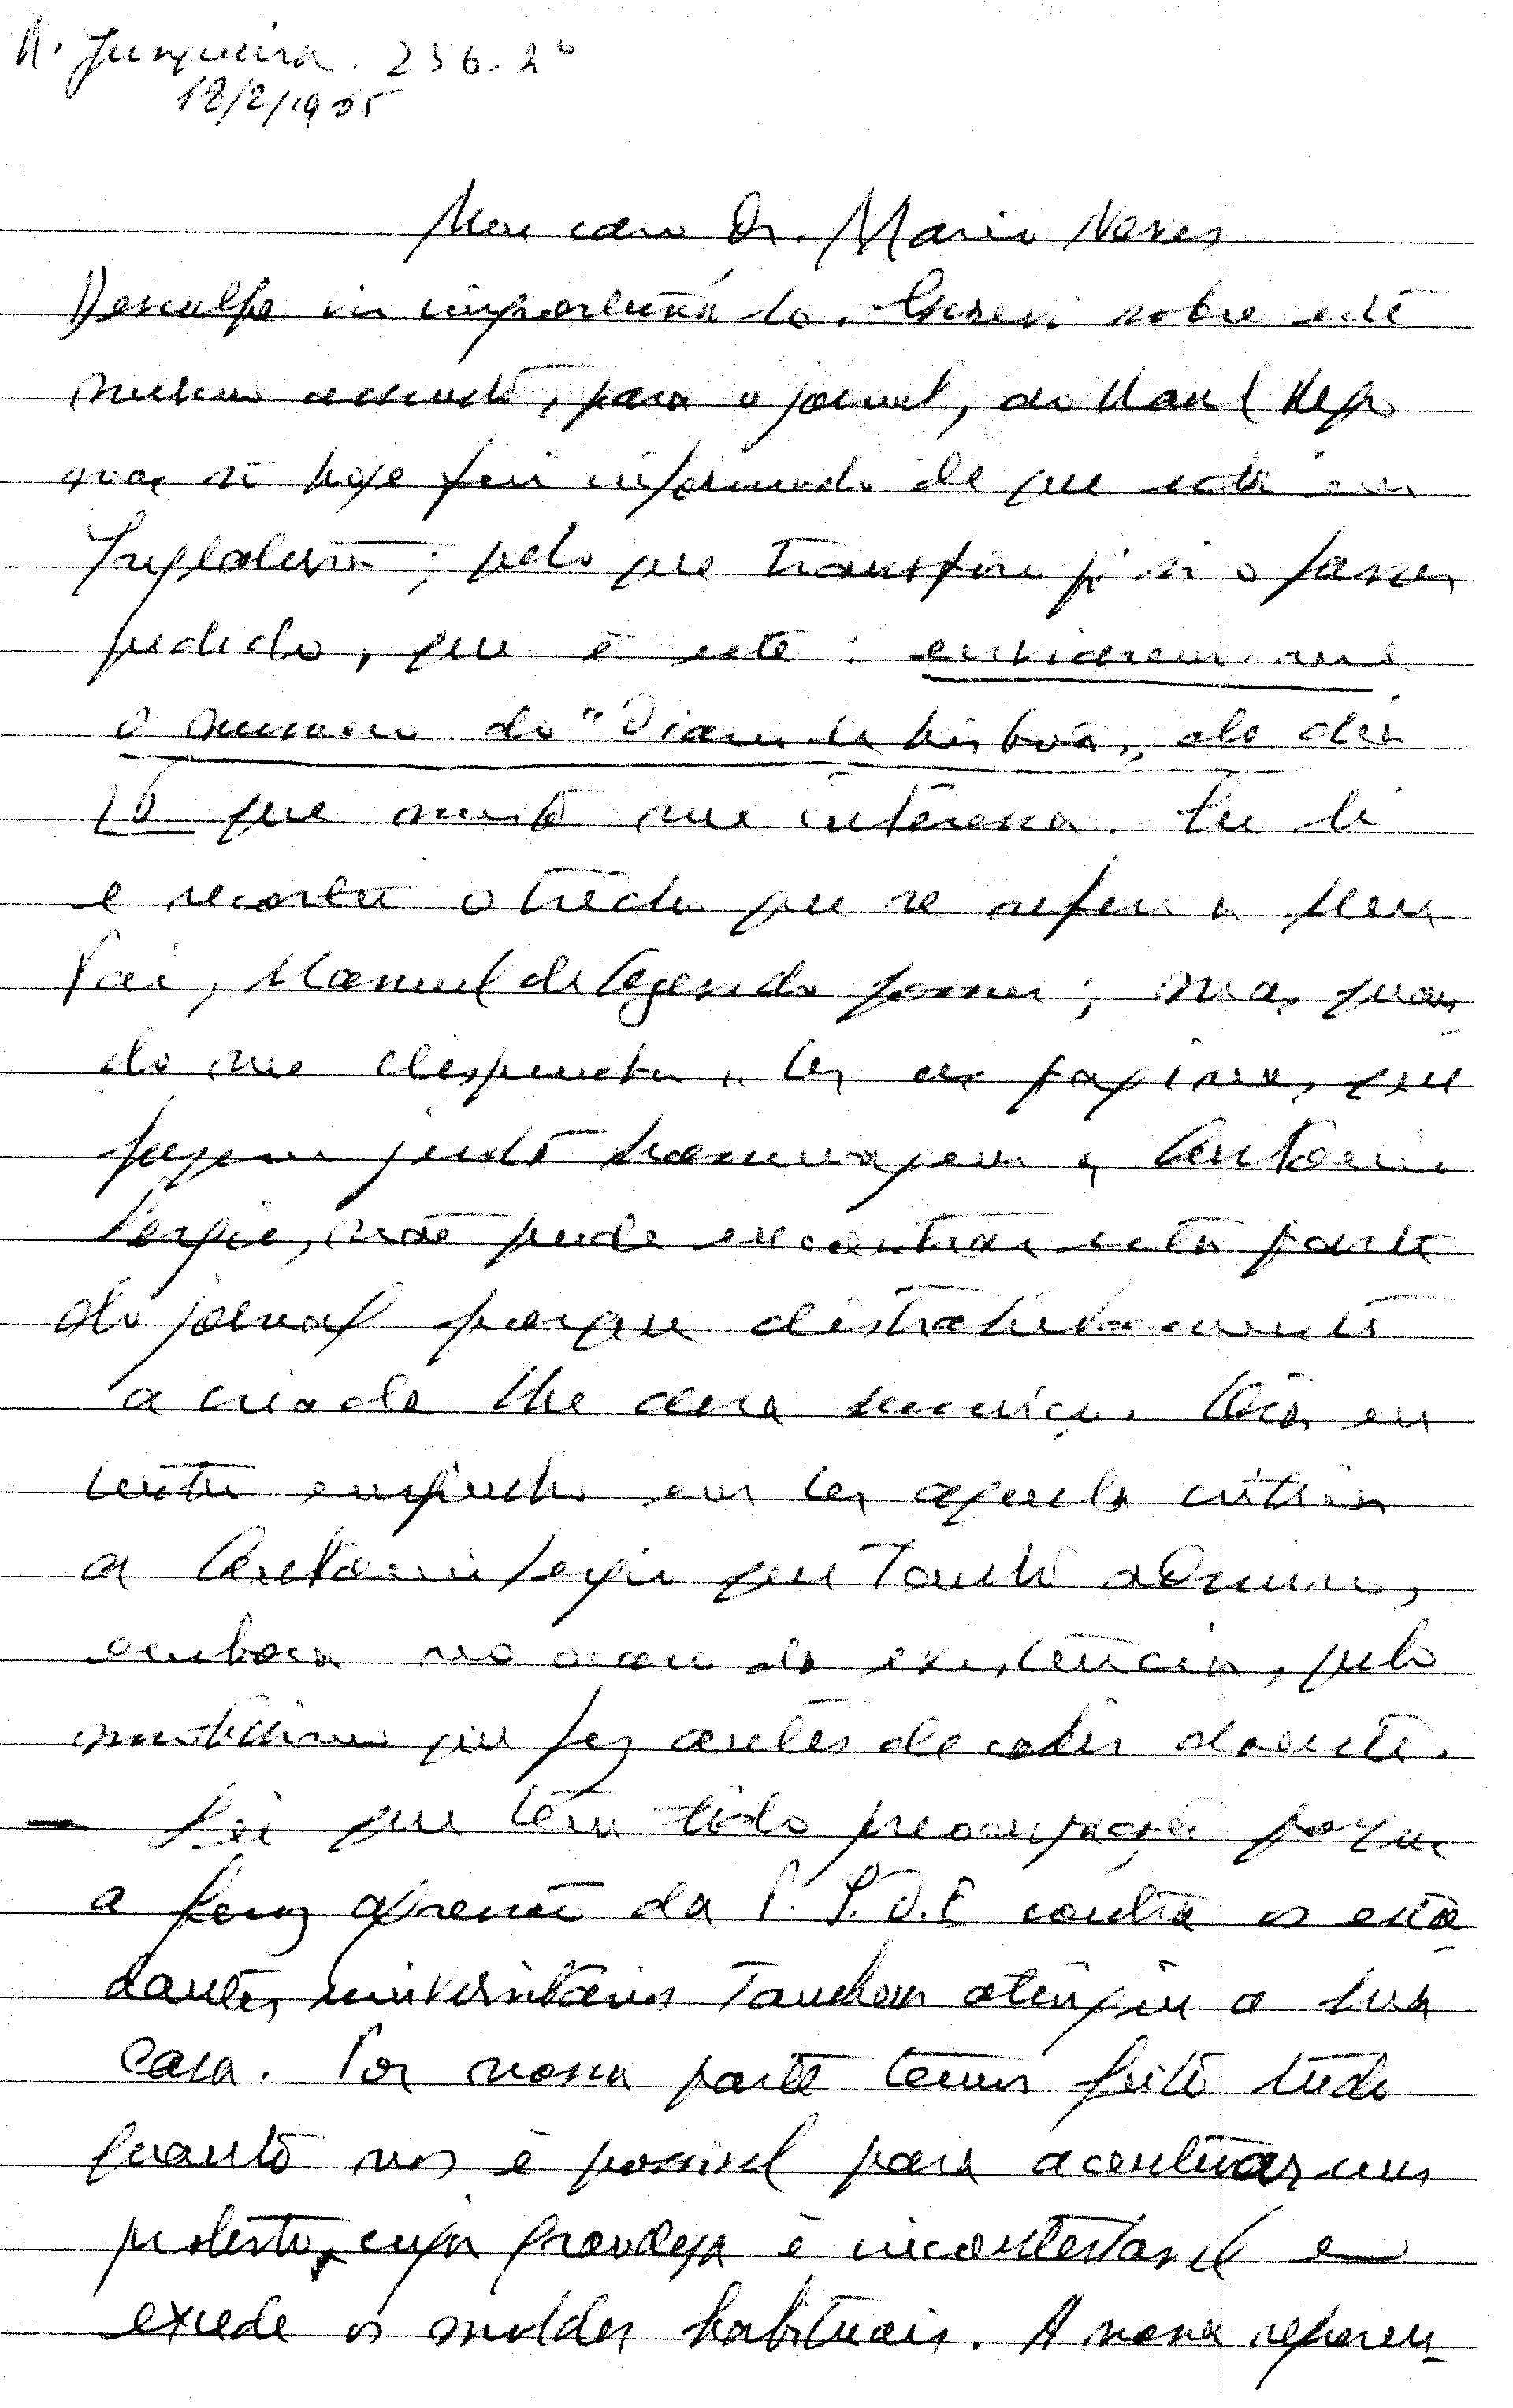 R. Junqueira. 236. 2º
18/2/1965
Meu caro Dr. Mario Neves
Desculpe vir importuná-lo. Escrevi sobre este
mesmo assunto, para o jornal, ao Raul Rego
mas só hoje fui informado de que está em
Inglaterra; pelo que transfiro p.ª si o
pedido, que é este: enviarem-me
o numero do "Diario de Lisboa", do dia
16 que muito me interessa. Eu li
e recortei o trecho que se refere a meu
Pai, Manuel de Azevedo Gomes; mas, quan-
do me dispunha a ler as paginas, que
fazem justa homenagem a Antonio
Sergio, não pude encontrar esta parte
do jornal porque distraidamente
a criada lhe dera sumiço. Ora eu
tenho empenho em ler aquela critica
a Antonio Sergio que tanto admiro,
embora no ocaso da existencia, pelo
muitissimo que fez antes de estar doente.
- Sei que tem tido preocupação porque
a feroz ofensiva da P.I.D.E contra os estu-
dantes universitarios tambem atingiu a sua
casa. Por nossa parte temos feito tudo
quanto nos é possivel para acentuar um
protesto, cuja grandeza é incontestavel e
excede os moldes habituais. A nossa